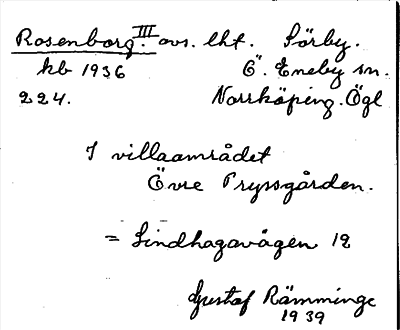 Rosenborg III. avs. lht. Sörby.
kb 1936 Ö. Eneby sn.
224. Norrköping. Ögl
I villaområdet
Övre Pryssgården.
= Lindhagavägen 12
Gustaf Rämminge
1939